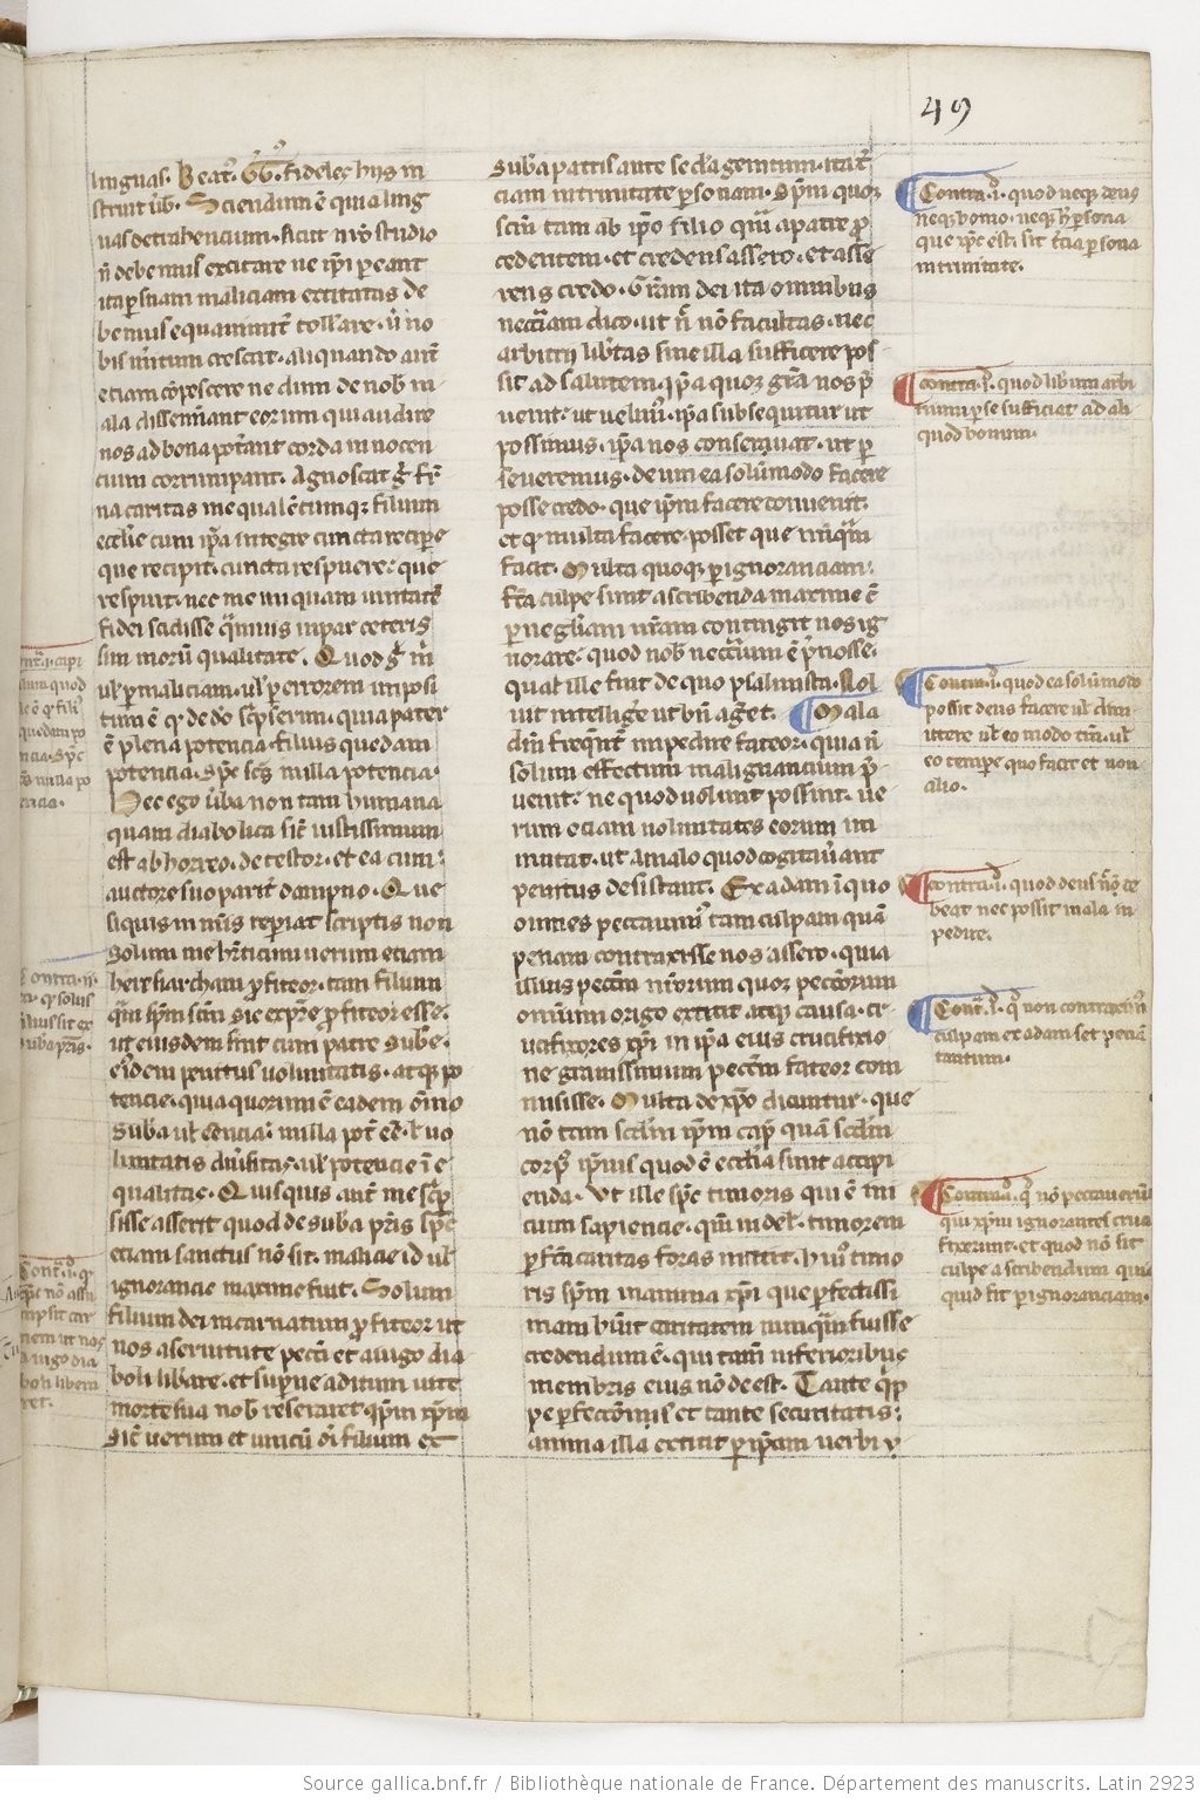 49
linguas. Beatꝰ. GGꝰ. fideles hijs in
struit ūb̄. Sciendum ē quia ling
uas detrahencium. sicut nr̄o studio
n̄ debemus excitare ne ip̄i pereant
ita per suam maliciam excitatas de
bemus equanimit̄ tollare. ū no
bis mītum crescat. aliquando aut̄
eciam cōpescere ne dum de nob̄ m
ala disseminant eorum qui audire
nos ad bona poterant corda innocen
cium corrumpant. Agnoscat gͦ fr̄
na caritas me qualēcumqꝫ filium
ecc̄lie cum ip̄a integre cuncta recipere
que recipit. cuncta respuere: que
respuit. nec me unquam unitatē
fidei scidisse quāuis inpar ceteris
sim morū qualitate. Quod gͦ m̄
ul̄ per maliciam. ul̄ per errorem imposi
tum ē qͥ de dō sc̄pserim. quia pater
ē plena potencia. filius quedam
potencia. sp̄c sc̄s nulla potencia.
Hec ego ūba non tam humana
quam diabolica sic̄ iustissimum
est abhorreo. detestor. et ea cum
auctore suo parit̄ dampno. Que
siquis in mīs reperiat scriptis non
solum me h̄eticum uerum eciam
heresiarcham profiteor. tam filium
qͣm sp̄m sc̄m sic exp̄re profiteor esse.
ut eiusdem sint cum patre sub̄e.
eiꝰdem penitus uoluntatis. atqꝫ po
tencie. quia quorum ē eadem ōino
sub̄a ul̄ eēncia: nulla pot̄ eē. ul̄ uo
luntatis diūsitas. ul̄ potencie īe
qualitas. Quisquis aut̄ me sc̄p
sisse asserit quod de sub̄a pr̄is sp̄c
eciam sanctus nō sit. malicie id ul̄
ignorancie maxime fuit. Solum
filium dei incarnatum profiteor ut
nos a seruitute peccī et a iugo dia
boli lib̄are. et sup̄ne aditum uite
morte sua nob̄ reseraret. qp̄m xp̄m
sic̄ uerum et unicū dī filium ex
sub̄a patris ante secl̄a genitum. ita t̄
ciam in trinitate personam. sp̄m quoqꝫ
sc̄m tam ab ip̄o filio quā a patre pro
cedentem. et credens assero. et asse
rens credo. Gr̄am dei ita omnibus
necc̄iam dico. ut n̄ nō facultas. nec
arbitrij lib̄tas sine illa sufficere pos
sit ad salutem. ip̄a quoqꝫ gr̄a nos p̄
uenit: ut uelimꝰ. ip̄a subsequitur ut
possimus. ip̄a nos conseruat. ut per
seueremus. deum ea solūmodo facere
posse credo. que ip̄m facere conuenit.
et qͥ multa facere posset que nūqͣm
facit. Multa quoqꝫ per ignoranciam
fc̄a culpe sunt ascribenda maxime c̄
per negl̄iam nr̄am contingit nos ig
norare. quod nob̄ necc̄rium ē p̄nosse.
qualis ille fuit de quo psalmista. Nol
uit intellige ut bn̄ aget̄. Mala
dm̄ freqūnt̄ impedire fateor. quia n̄
solum effectum malignancium p̄
uenit: ne quod uolunt possint. ue
rum eciam uoluntates eorum im
mutat. ut a malo quod cogitaūant
penitus desistant. Ex adam ī quo
omnes peccauimꝰ tam culpam quā
penam contraxisse nos assero. quia
illius peccm̄ nr̄orum quoqꝫ pecc̄orum
omnium origo extitit atqꝫ causa. cr
ucifixores xp̄i in ip̄a eius crucifixio
ne grauissimum pecc̄m fateor com
misisse. Multa de xp̄o dicuntur. que
nō tam scd̄m ip̄m cap̄ quā scd̄m
corpꝰ ip̄ius quod ē ecc̄lia sunt accipi
enda. Ut ille sp̄c timoris qui ē ini
cium sapiencie. qm̄ uidel̄. timorem
perfc̄a caritas foras mittit. huiꝰ timo
ris sp̄m in anima xp̄i que perfectissi
mam būit caritatem nunqͣm fuisse
credendum ē. qui tam̄ inferioribus
membris eius nō deest. Tante qͥp
pe perfecc̄onis et tante securitatis:
anima illa extitit per ip̄am uerbi y
Contra. i. quod neqꝫ deus
neqꝫ homo. neqꝫ h̄ persona
que xp̄c est: sit t̄cia persona
in trinitate.
contra. i. quod lib̄um arbi
trium per se sufficiat ad ali
quod bonum.
Contra. i. quod ea solūmodo
possit deus facere ul̄ dim
ittere ul̄ eo modo tm̄. ul̄
eo tempere quo facit et non
alio.
contra. i. quod deus nō de
beat nec possit mala in
pedire.
Cont̄. i. qͥ non contraximꝰ
culpam ex adam set penā
tantum.
Contra. i. qͥ nō peccauerūt
qui xp̄m ignorantes cruci
fixerunt. et quod nō sit
culpe ascribendum quic
quid fit per ignoranciam.
Source gallica.bnf.fr / Bibliothèque nationale de France. Département des manuscrits. Latin 2923